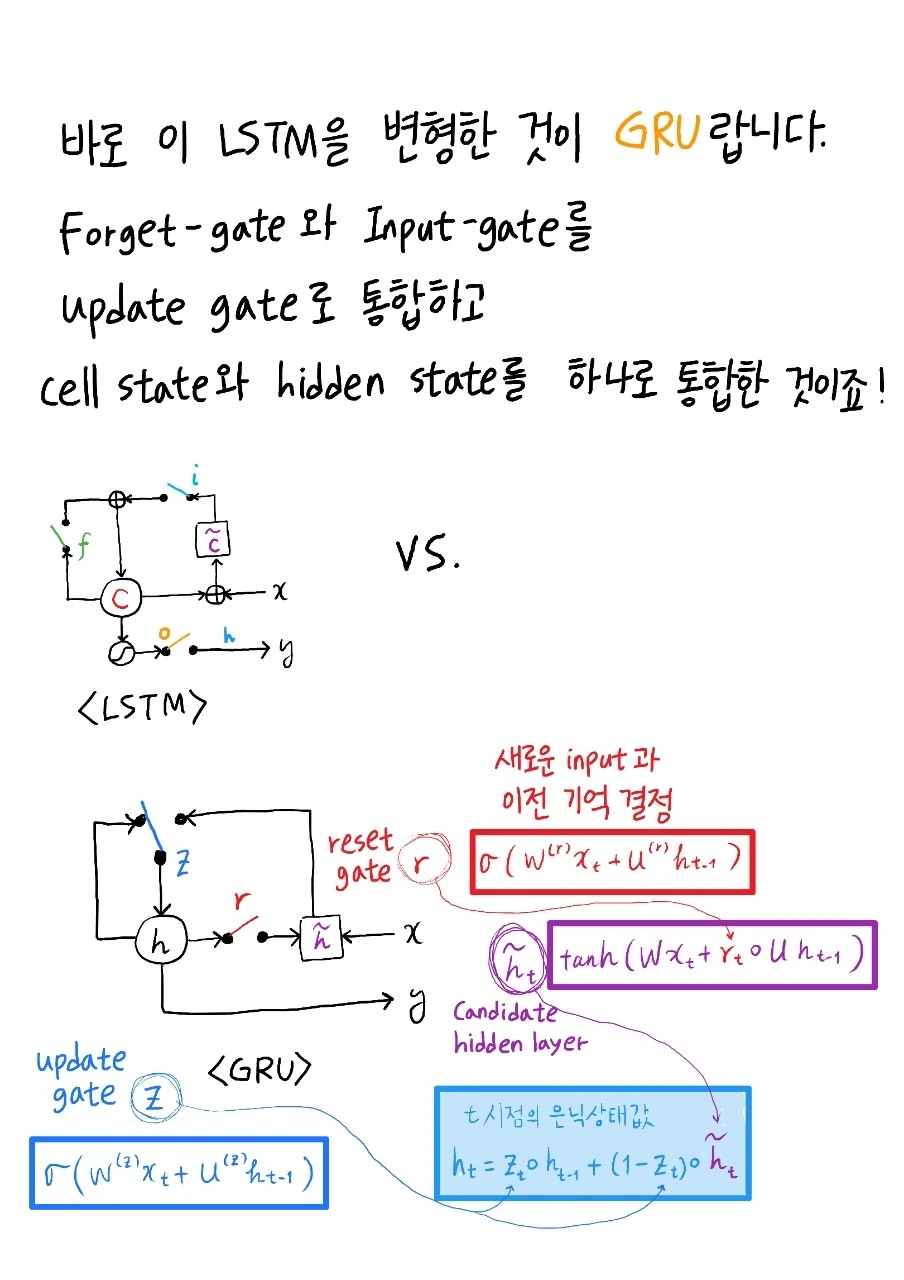 바로 이 LSTM을 변형한 것이 GRU랍니다.
Forget-gate와 Input-gate를
update gate로 통합하고
cell state와 hidden state를 하나로 통합한 것이죠!
i
f
c̃
C
x
o
h
y
<LSTM>
vs.
새로운 input과
이전 기억 결정
reset
gate
r
σ(W⁽ʳ⁾xₜ+U⁽ʳ⁾hₜ₋₁)
z
r
h
h̃
x
y
<GRU>
h̃ₜ
tanh(Wxₜ+rₜ∘Uhₜ₋₁)
Candidate
hidden layer
update
gate
z
σ(W⁽ᶻ⁾xₜ+U⁽ᶻ⁾hₜ₋₁)
t시점의 은닉상태값
hₜ=zₜ∘hₜ₋₁+(1-zₜ)∘h̃ₜ